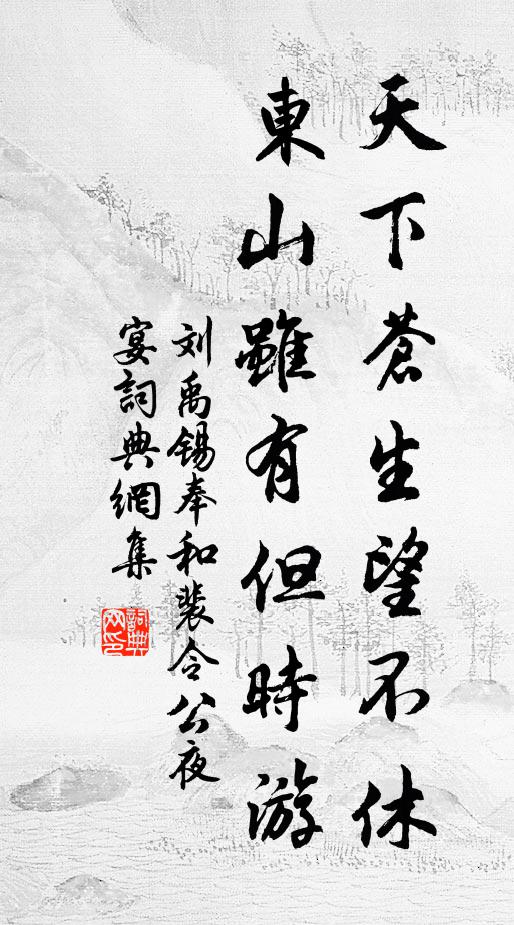 天下蒼生望不休
東山雖有但時游
刘禹锡奉和裴令公夜
宴詞典網集
詞典网印